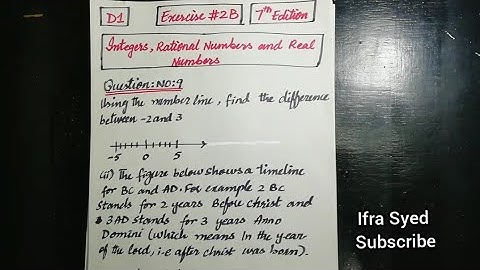 D1
Exercise #2B
7th Edition
Integers, Rational Numbers and Real
Numbers
Question:NO:9
Using the number line, find the difference
between -2 and 3
-5 0 5
(ii) The figure below shows a timeline
for BC and AD. For example 2 BC
stands for 2 years Before Christ and
3 AD stands for 3 years Anno
Domini (which means In the year
of the lord, i.e after christ was born).
Ifra Syed
Subscribe